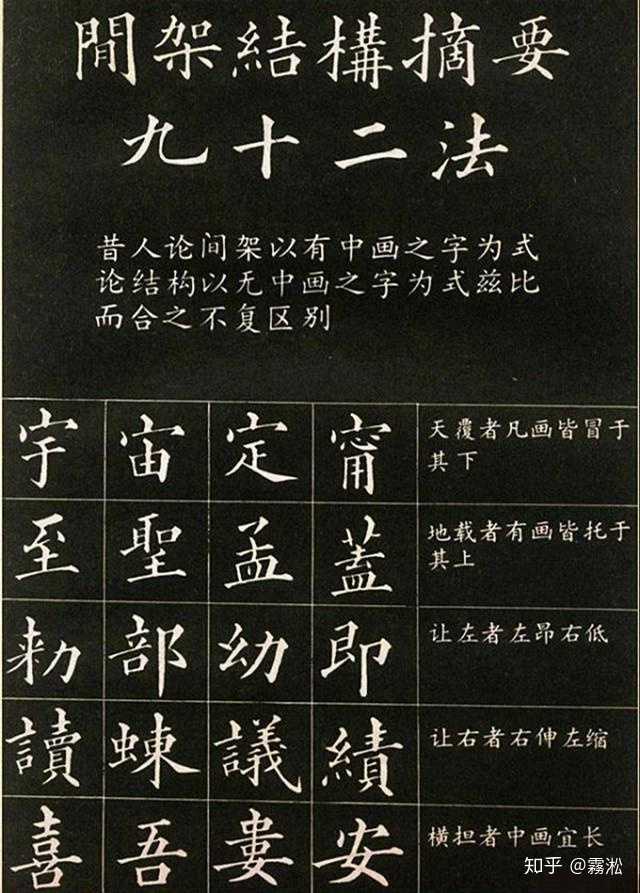 閒架結構摘要
九十二法
昔人论间架以有中画之字为式
论结构以无中画之字为式兹比
而合之不复区别
宇 宙 定 甯 天覆者凡画皆冒于
其下
至 聖 孟 蓋 地载者有画皆托于
其上
勑 部 幼 即 让左者左昂右低
讀 蝀 議 績 让右者右伸左缩
喜 吾 婁 安 横担者中画宜长
知乎 @霧淞